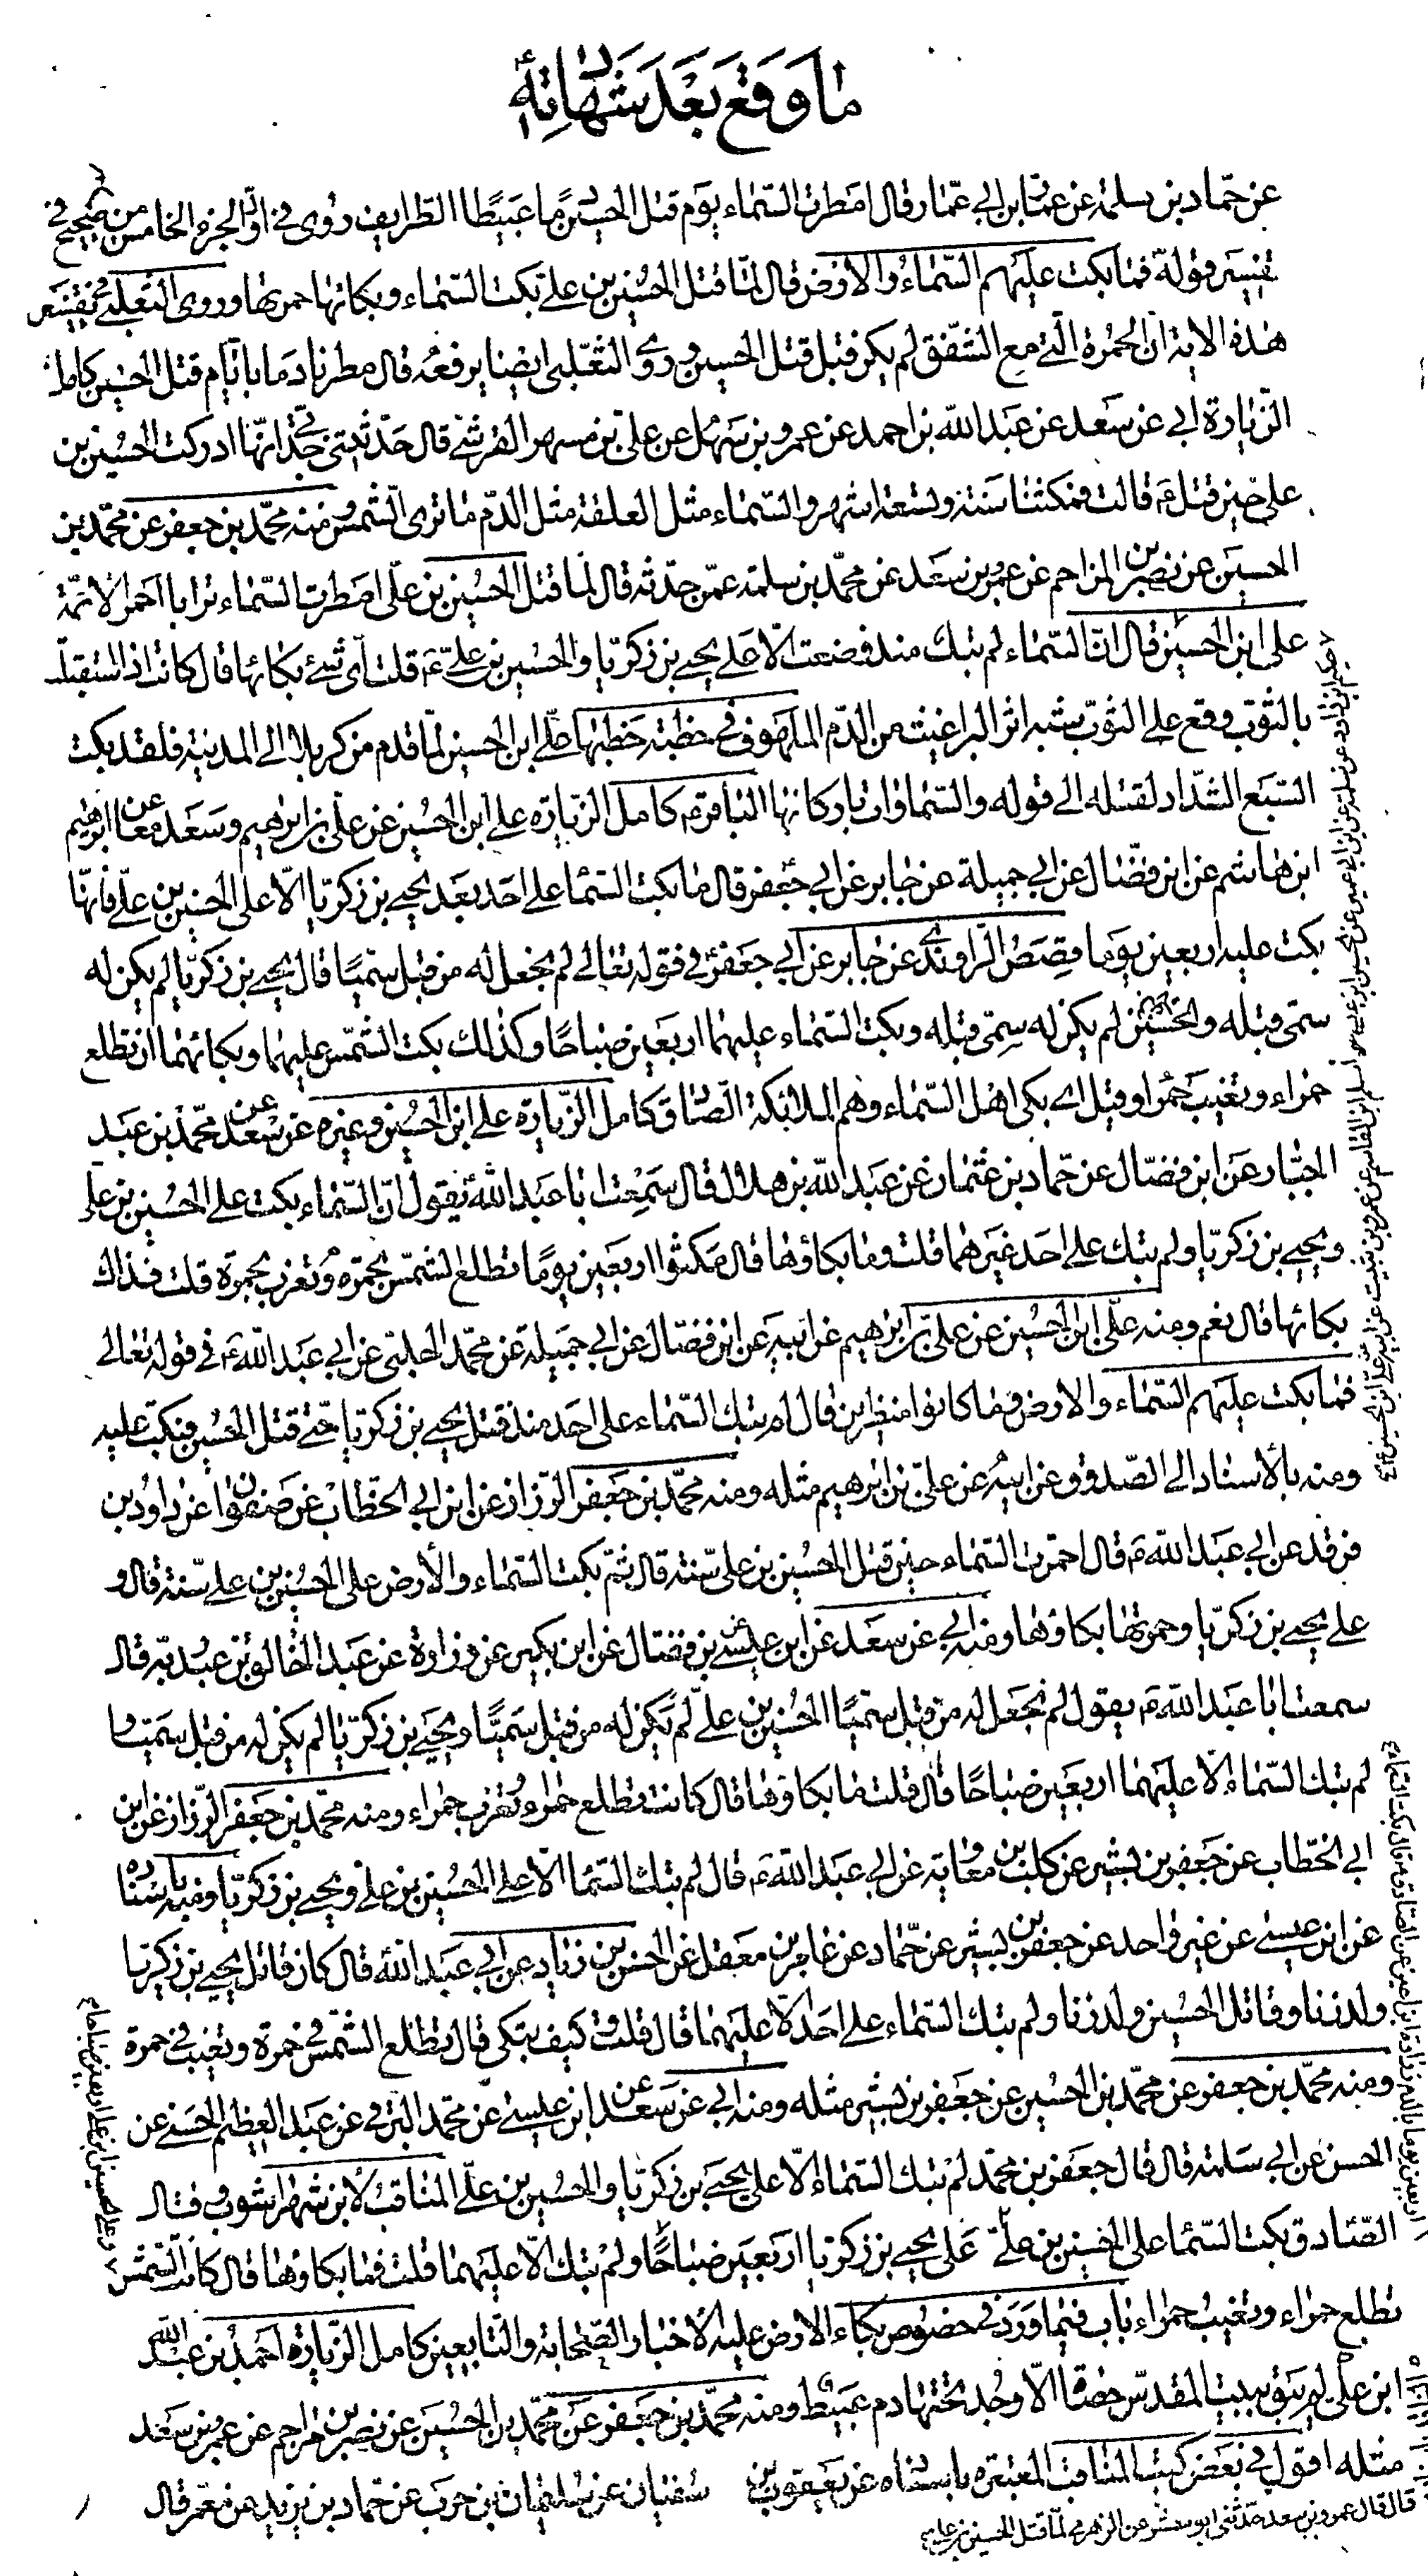 ما وقع بعد شهادته
عن حماد بن سلمة عن عمار بن ابي عمار قال امطرت السماء يوم قتل الحسين دما عبيطا الطرايف روى في اول الجزء الخامس من صحيح في
تفسير قوله فما بكت عليهم السماء والارض قال لما قتل الحسين بن علي بكت السماء وبكائها حمرتها وروى الثعلبي في تفسير
هذه الاية ان الحمرة التي مع الشفق لم يكن قبل قتل الحسين وروى الثعلبي ايضا يرفعه قال مطرنا دما بايام قتل الحسين كامل
الزيارة ابي عن سعد عن عبد الله بن احمد عن عمرو بن سهل عن علي بن مسهر القرشي قال حدثتني جدتي انها ادركت الحسين بن
علي حين قتل ع قالت فمكثنا سنة وتسعة اشهر والسماء مثل العلقة مثل الدم ما ترى الشمس ومنه محمد بن جعفر عن محمد بن
الحسين عن نصر بن المزاحم عن عمر بن سعد عن محمد بن سلمة عمن حدثه قال لما قتل الحسين بن علي امطرت السماء ترابا احمر الائمة
علي ابن الحسين قال ان السماء لم تبك منذ وضعت الا على يحيى بن زكريا والحسين بن علي ع قلت اي شيء بكائها قال كانت اذا استقبلت
بالثوب وقع على الثوب شبه اثر البراغيث من الدم الملهوف في خطبة خطبها علي ابن الحسين لما قدم من كربلا الى المدينة فلقد بكت
السبع الشداد لقتله الى قوله والسماوات باركانها الباقر ع كامل الزيارة علي ابن الحسين عن علي بن ابرهيم وسعد معا عن ابرهيم
ابن هاشم عن ابن فضال عن ابي جميلة عن جابر عن ابي جعفر قال ما بكت السماء على احد بعد يحيى بن زكريا الا على الحسين بن علي فانها
بكت عليه اربعين يوما قصص الراوندي عن جابر عن ابي جعفر ع في قوله تعالى لم نجعل له من قبل سميا قال يحيى بن زكريا لم يكن له
سمي قبله والحسين لم يكن له سمي قبله وبكت السماء عليهما اربعين صباحا وكذلك بكت الشمس عليهما وبكائهما ان تطلع
حمراء وتغيب حمراء وقيل اي بكى اهل السماء وهم الملائكة الصادق كامل الزيارة علي ابن الحسين وغيره عن سعد عن محمد بن عبد
الجبار عن ابن فضال عن حماد بن عثمان عن عبد الله بن هلال قال سمعت ابا عبد الله ع يقول ان السماء بكت على الحسين بن علي
ويحيى بن زكريا ولم تبك على احد غيرهما قلت وما بكاؤها قال مكثوا اربعين يوما تطلع الشمس بحمرة وتغرب بحمرة قلت فذاك
بكائها قال نعم ومنه علي ابن الحسين عن علي بن ابرهيم عن ابيه عن ابن فضال عن ابي جميلة عن محمد الحلبي عن ابي عبد الله ع في قوله تعالى
فما بكت عليهم السماء والارض وما كانوا منظرين قال لم تبك السماء على احد منذ قتل يحيى بن زكريا حتى قتل الحسين فبكت عليه
ومنه بالاسناد الى الصدوق عن ابيه عن علي بن ابرهيم مثله ومنه محمد بن جعفر الرزاز عن ابن ابي الخطاب عن صفوان عن داود بن
فرقد عن ابي عبد الله ع قال احمرت السماء حين قتل الحسين بن علي سنة قال ثم بكت السماء والارض على الحسين بن علي سنة قال و
على يحيى بن زكريا وحمرتها بكاؤها ومنه ابي عن سعد عن ابن عيسى عن بن فضال عن ابن بكير عن زرارة عن عبد الخالق بن عبد ربه قال
سمعت ابا عبد الله ع يقول لم نجعل له من قبل سميا الحسين بن علي لم يكن له من قبل سميا ويحيى بن زكريا لم يكن له من قبل سميا و
لم تبك السماء الا عليهما اربعين صباحا قال قلت ما بكاؤها قال كانت تطلع حمراء وتغرب حمراء ومنه محمد بن جعفر الرزاز عن ابن
ابي الخطاب عن جعفر بن بشير عن كليب بن معاوية عن ابي عبد الله ع قال لم تبك السماء الا على الحسين بن علي ويحيى بن زكريا ومنه باسناده
عن ابن عيسى عن غير واحد عن جعفر بن بشير عن حماد عن عامر بن معقل عن الحسن بن زياد عن ابي عبد الله ع قال كان قاتل يحيى بن زكريا
ولد زنا وقاتل الحسين ولد زنا ولم تبك السماء على احد الا عليهما قال قلت وكيف تبكي قال تطلع الشمس في حمرة وتغيب في حمرة
ومنه محمد بن جعفر عن محمد بن الحسين عن جعفر بن بشير مثله ومنه ابي عن سعد عن ابن عيسى عن محمد البرقي عن عبد العظيم الحسني عن
الحسن عن ابي سلمة قال قال جعفر بن محمد لم تبك السماء الا على يحيى بن زكريا والحسين بن علي المناقب لابن شهراشوب وقال
الصادق بكت السماء على الحسين بن علي على يحيى بن زكريا اربعين صباحا ولم تبك الا عليهما قلت فما بكاؤها قال كانت الشمس
تطلع حمراء وتغيب حمراء باب فيما ورد في خصوص بكاء الارض عليه الاخبار الصحابة والتابعين كامل الزيارة احمد بن عبد الله
ابن علي لم يبق ببيت المقدس حصاة الا وجد تحتها دم عبيط ومنه محمد بن جعفر عن محمد بن الحسين عن نصر بن مزاحم عن عمر بن سعد
مثله اقول في بعض كتب المناقب المعتبره باسناده عن يعقوب بن سفيان عن سليمان بن حرب عن حماد بن زيد عن معمر قال
قال قال عمرو بن سعد حدثني ابو معشر عن الزهري لما قتل الحسين بن علي